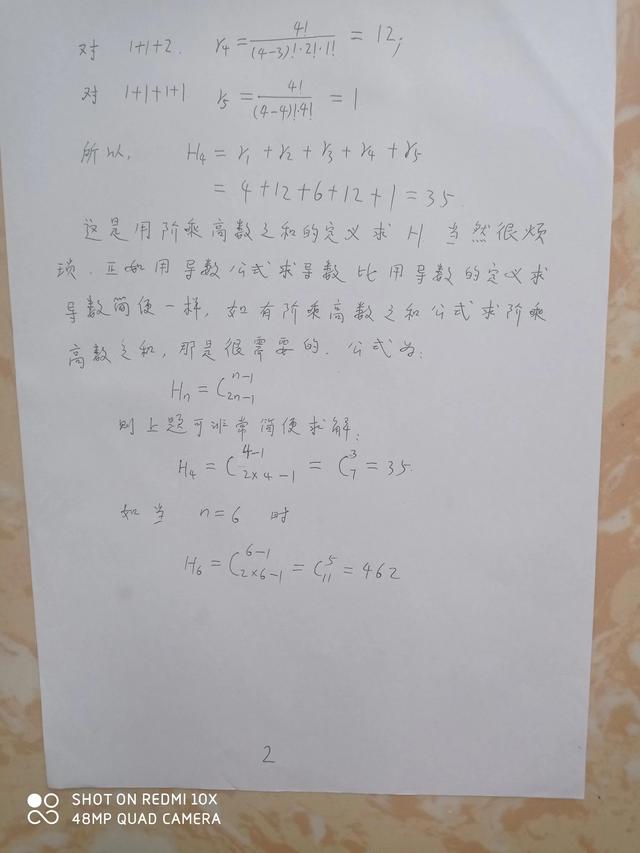 对 1+1+2. γ₄ = 4!/((4-3)!·2!·1!) = 12;
对 1+1+1+1 γ₅ = 4!/((4-4)!·4!) = 1
所以, H₄ = γ₁ + γ₂ + γ₃ + γ₄ + γ₅
= 4+12+6+12+1 = 35.
这是用阶乘高数之和的定义求 H 当然很烦
琐. 正如用导数公式求导数比用导数的定义求
导数简便一样, 如有阶乘高数之和公式求阶乘
高数之和, 那是很需要的. 公式为:
Hₙ = C_{2n-1}^{n-1}
则上题可非常简便求解:
H₄ = C_{2×4-1}^{4-1} = C_7^3 = 35.
如当 n=6 时
H₆ = C_{2×6-1}^{6-1} = C_{11}^5 = 462
2
SHOT ON REDMI 10X
48MP QUAD CAMERA